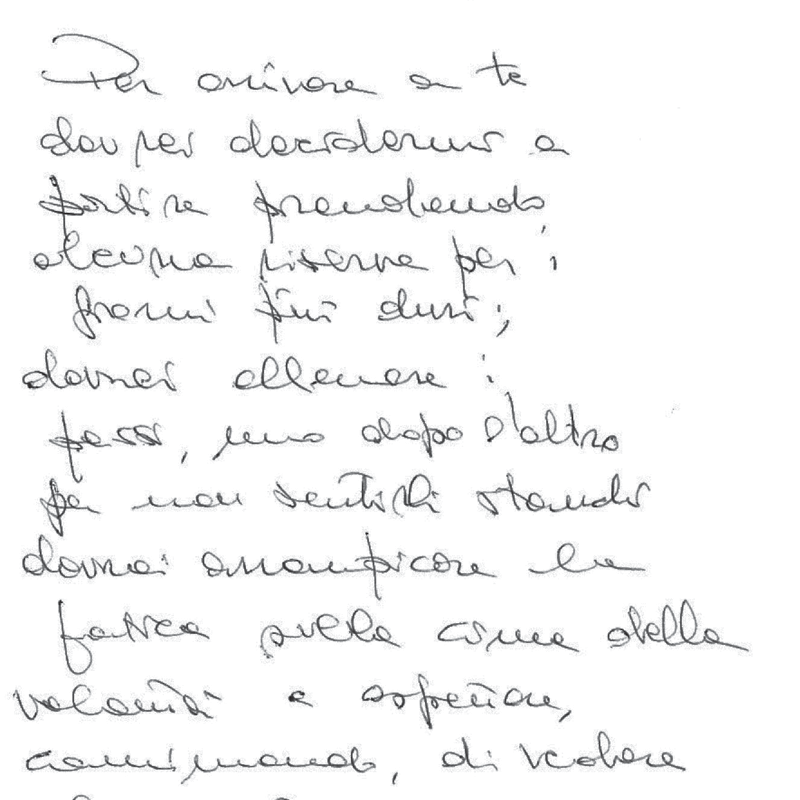 Per arrivare a te
dovrei decidermi a
partire prendendo
alcuna riserva per i
giorni più duri;
dovrei allenare i
passi, uno dopo l'altro
per non sentirli stanchi
dovrei arrampicare la
fatica sulla cima della
volontà e aspettare,
camminando, di vedere